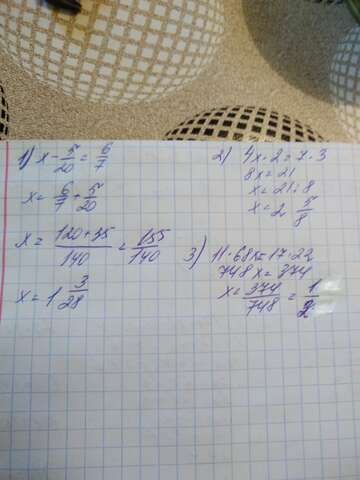 1) x - 5/20 = 6/7
x = 6/7 + 5/20
x = 120+35/140 = 155/140
x = 1 3/28
2) 4x · 2 = 7 · 3
8x = 21
x = 21 : 8
x = 2 5/8
3) 11 · 68x = 17 · 22
748x = 374
x = 374/748 = 1/2